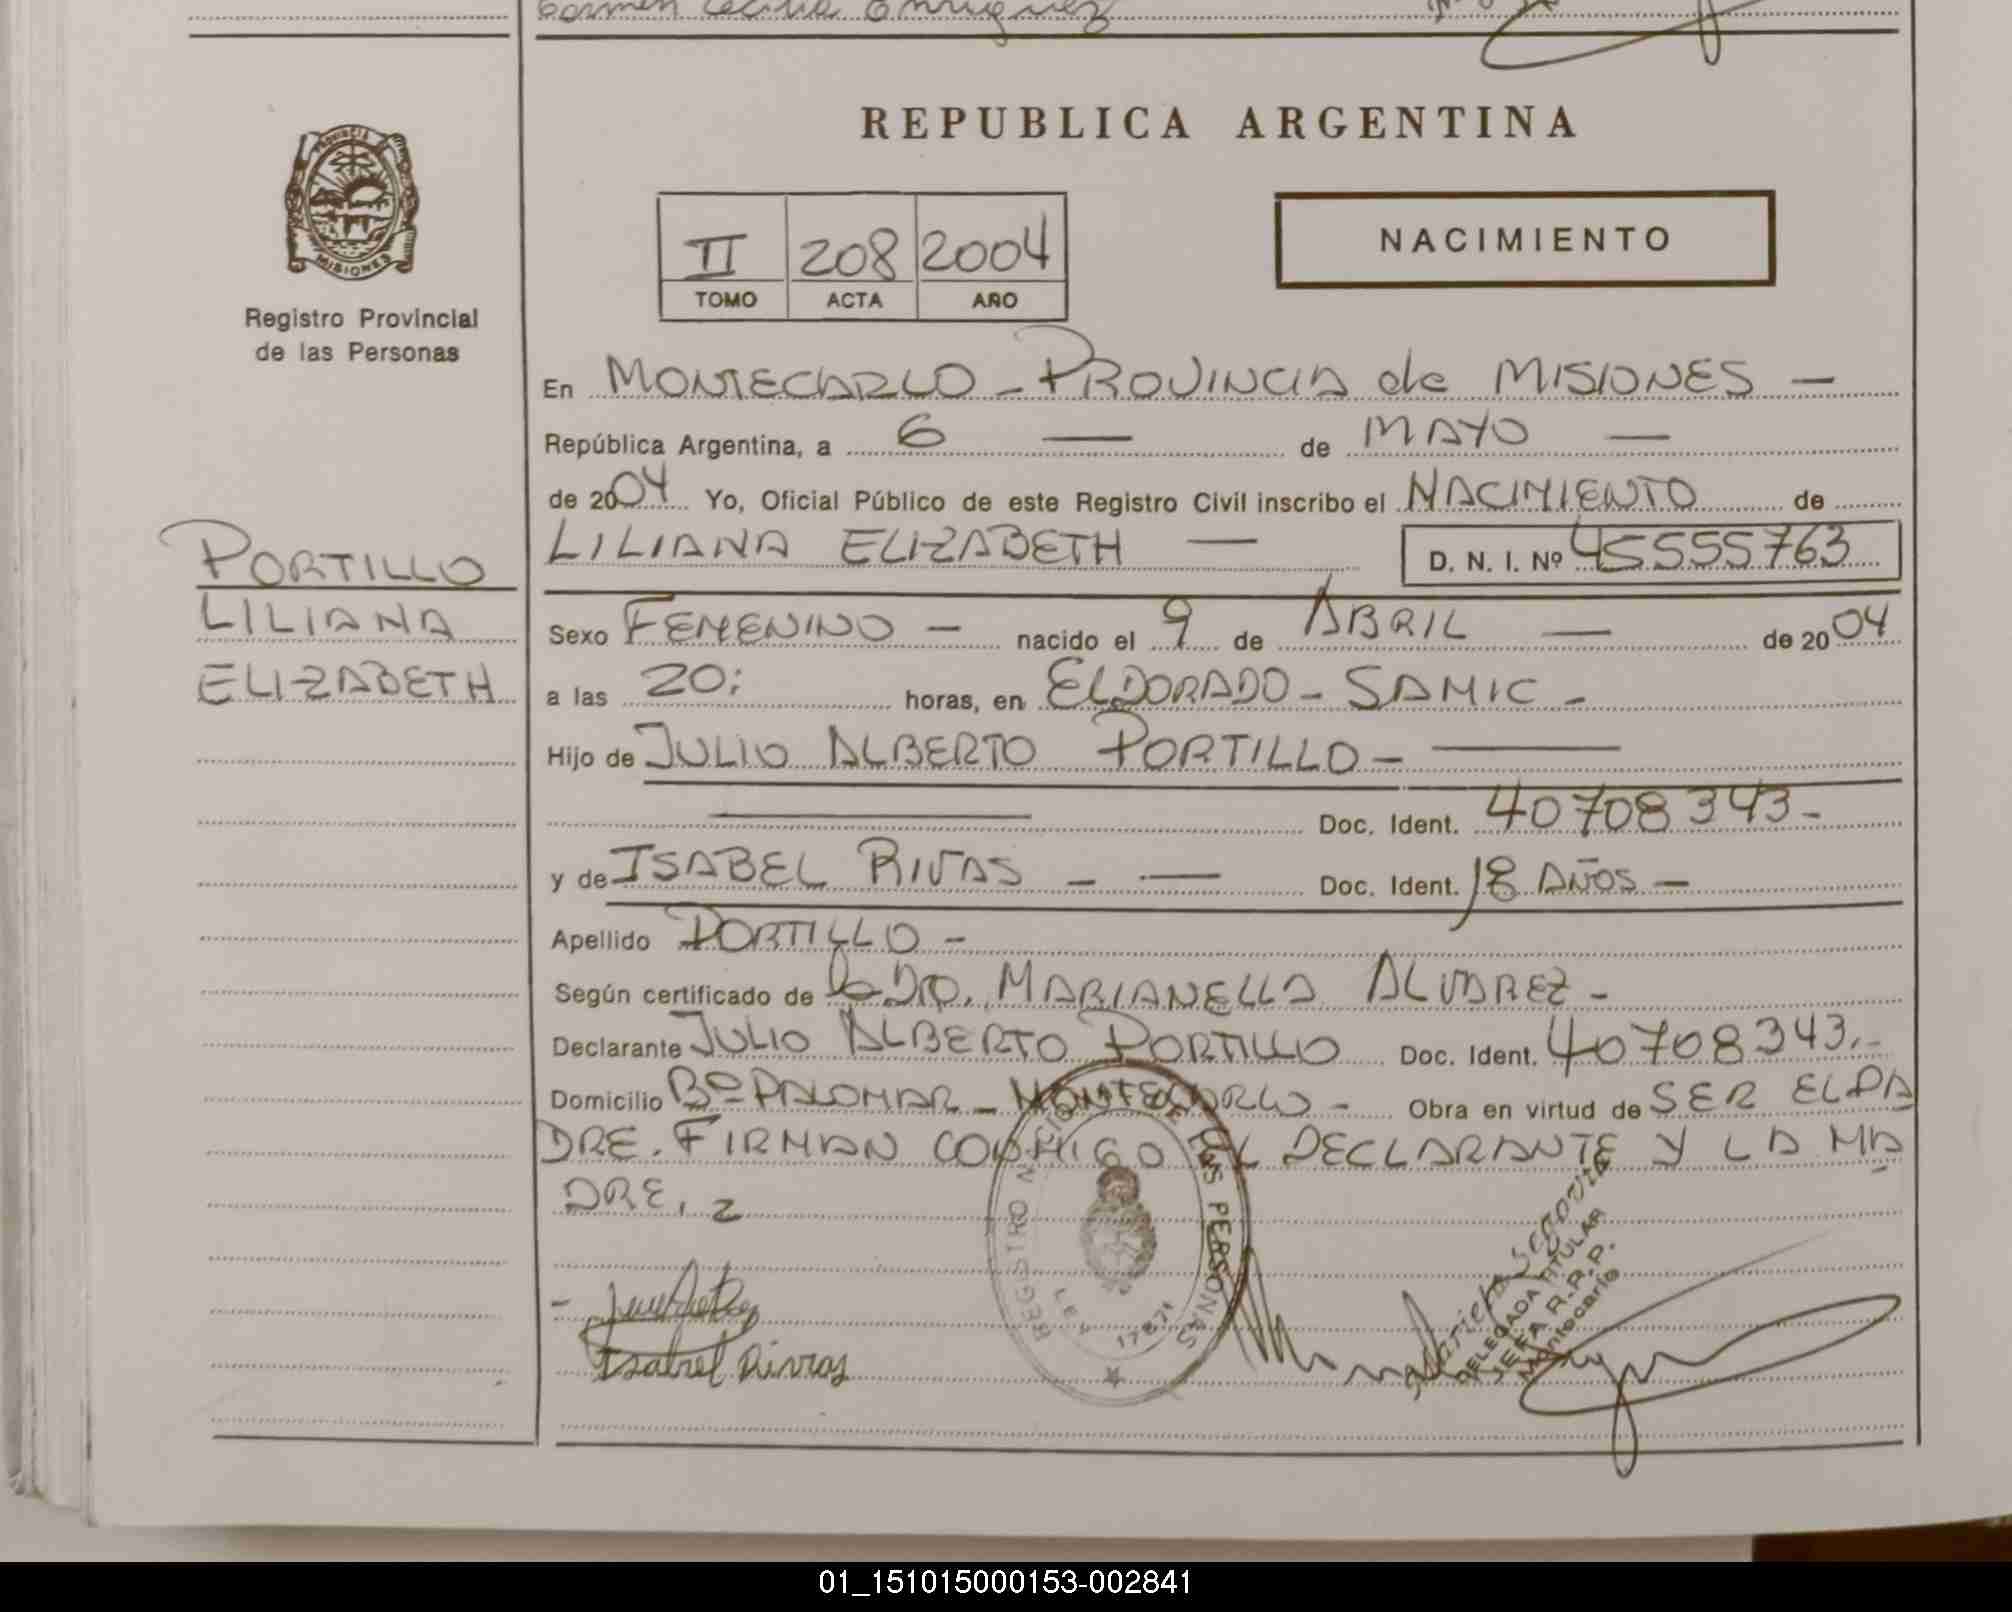 Carmen Cecilia Enriquez
REPUBLICA ARGENTINA
PROVINCIA
MISIONES
Registro Provincial
de las Personas
II 208 2004
TOMO ACTA AÑO
NACIMIENTO
En MONTECARLO - PROVINCIA de MISIONES —
República Argentina, a 6 — de MAYO —
de 2004 Yo, Oficial Público de este Registro Civil inscribo el NACIMIENTO de
LILIANA ELIZABETH — D. N. I. Nº 45555763
PORTILLO
LILIANA
ELIZABETH
Sexo FEMENINO — nacido el 9 de ABRIL — de 2004
a las 20: horas, en ELDORADO - SAMIC -
Hijo de JULIO ALBERTO PORTILLO - —
— Doc. Ident. 40708343-
y de ISABEL RIVAS - — Doc. Ident. 18 AÑOS —
Apellido PORTILLO -
Según certificado de la DRA. MARIANELLA ALVAREZ -
Declarante JULIO ALBERTO PORTILLO Doc. Ident. 40708343.-
Domicilio Bº PALOMAR - MONTECARLO - Obra en virtud de SER EL PA
DRE. FIRMAN CONMIGO EL DECLARANTE Y LA MA
DRE.
REGISTRO NACIONAL DE LAS PERSONAS
LEY 17671
Isabel Rivas
DELEGADA TITULAR
JEFA R.R.P.
Montecarlo
01_151015000153-002841